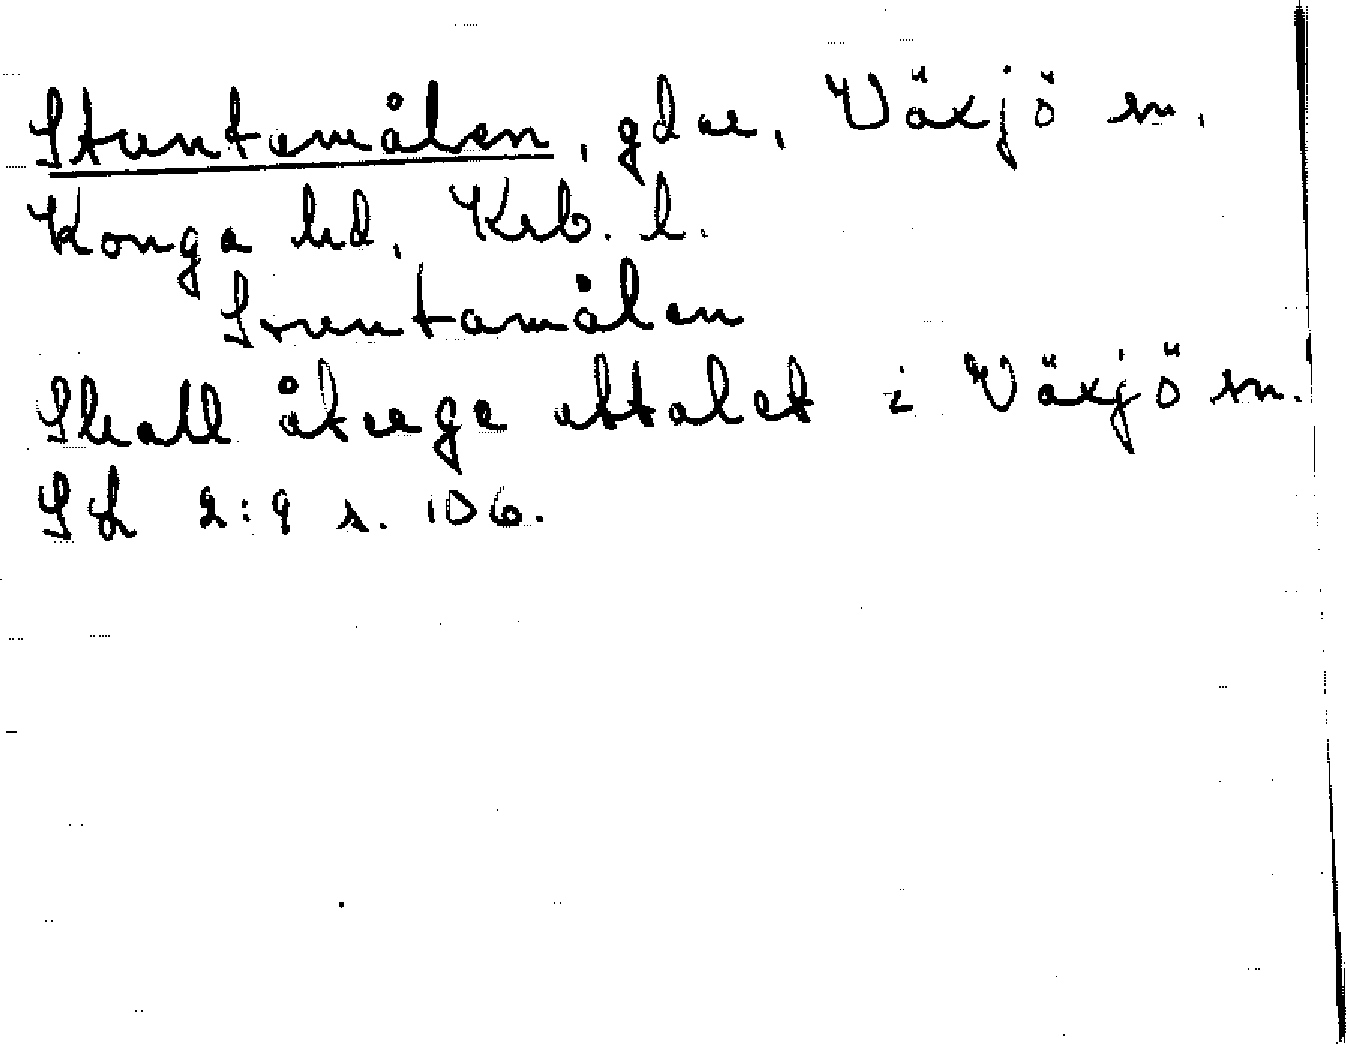 Stuntamålen, gdar, Växjö sn,
Konga hd, Krb. l.
Sruntamålen
Skall återge uttalet i Växjö sn.
SL 2:9 s. 106.